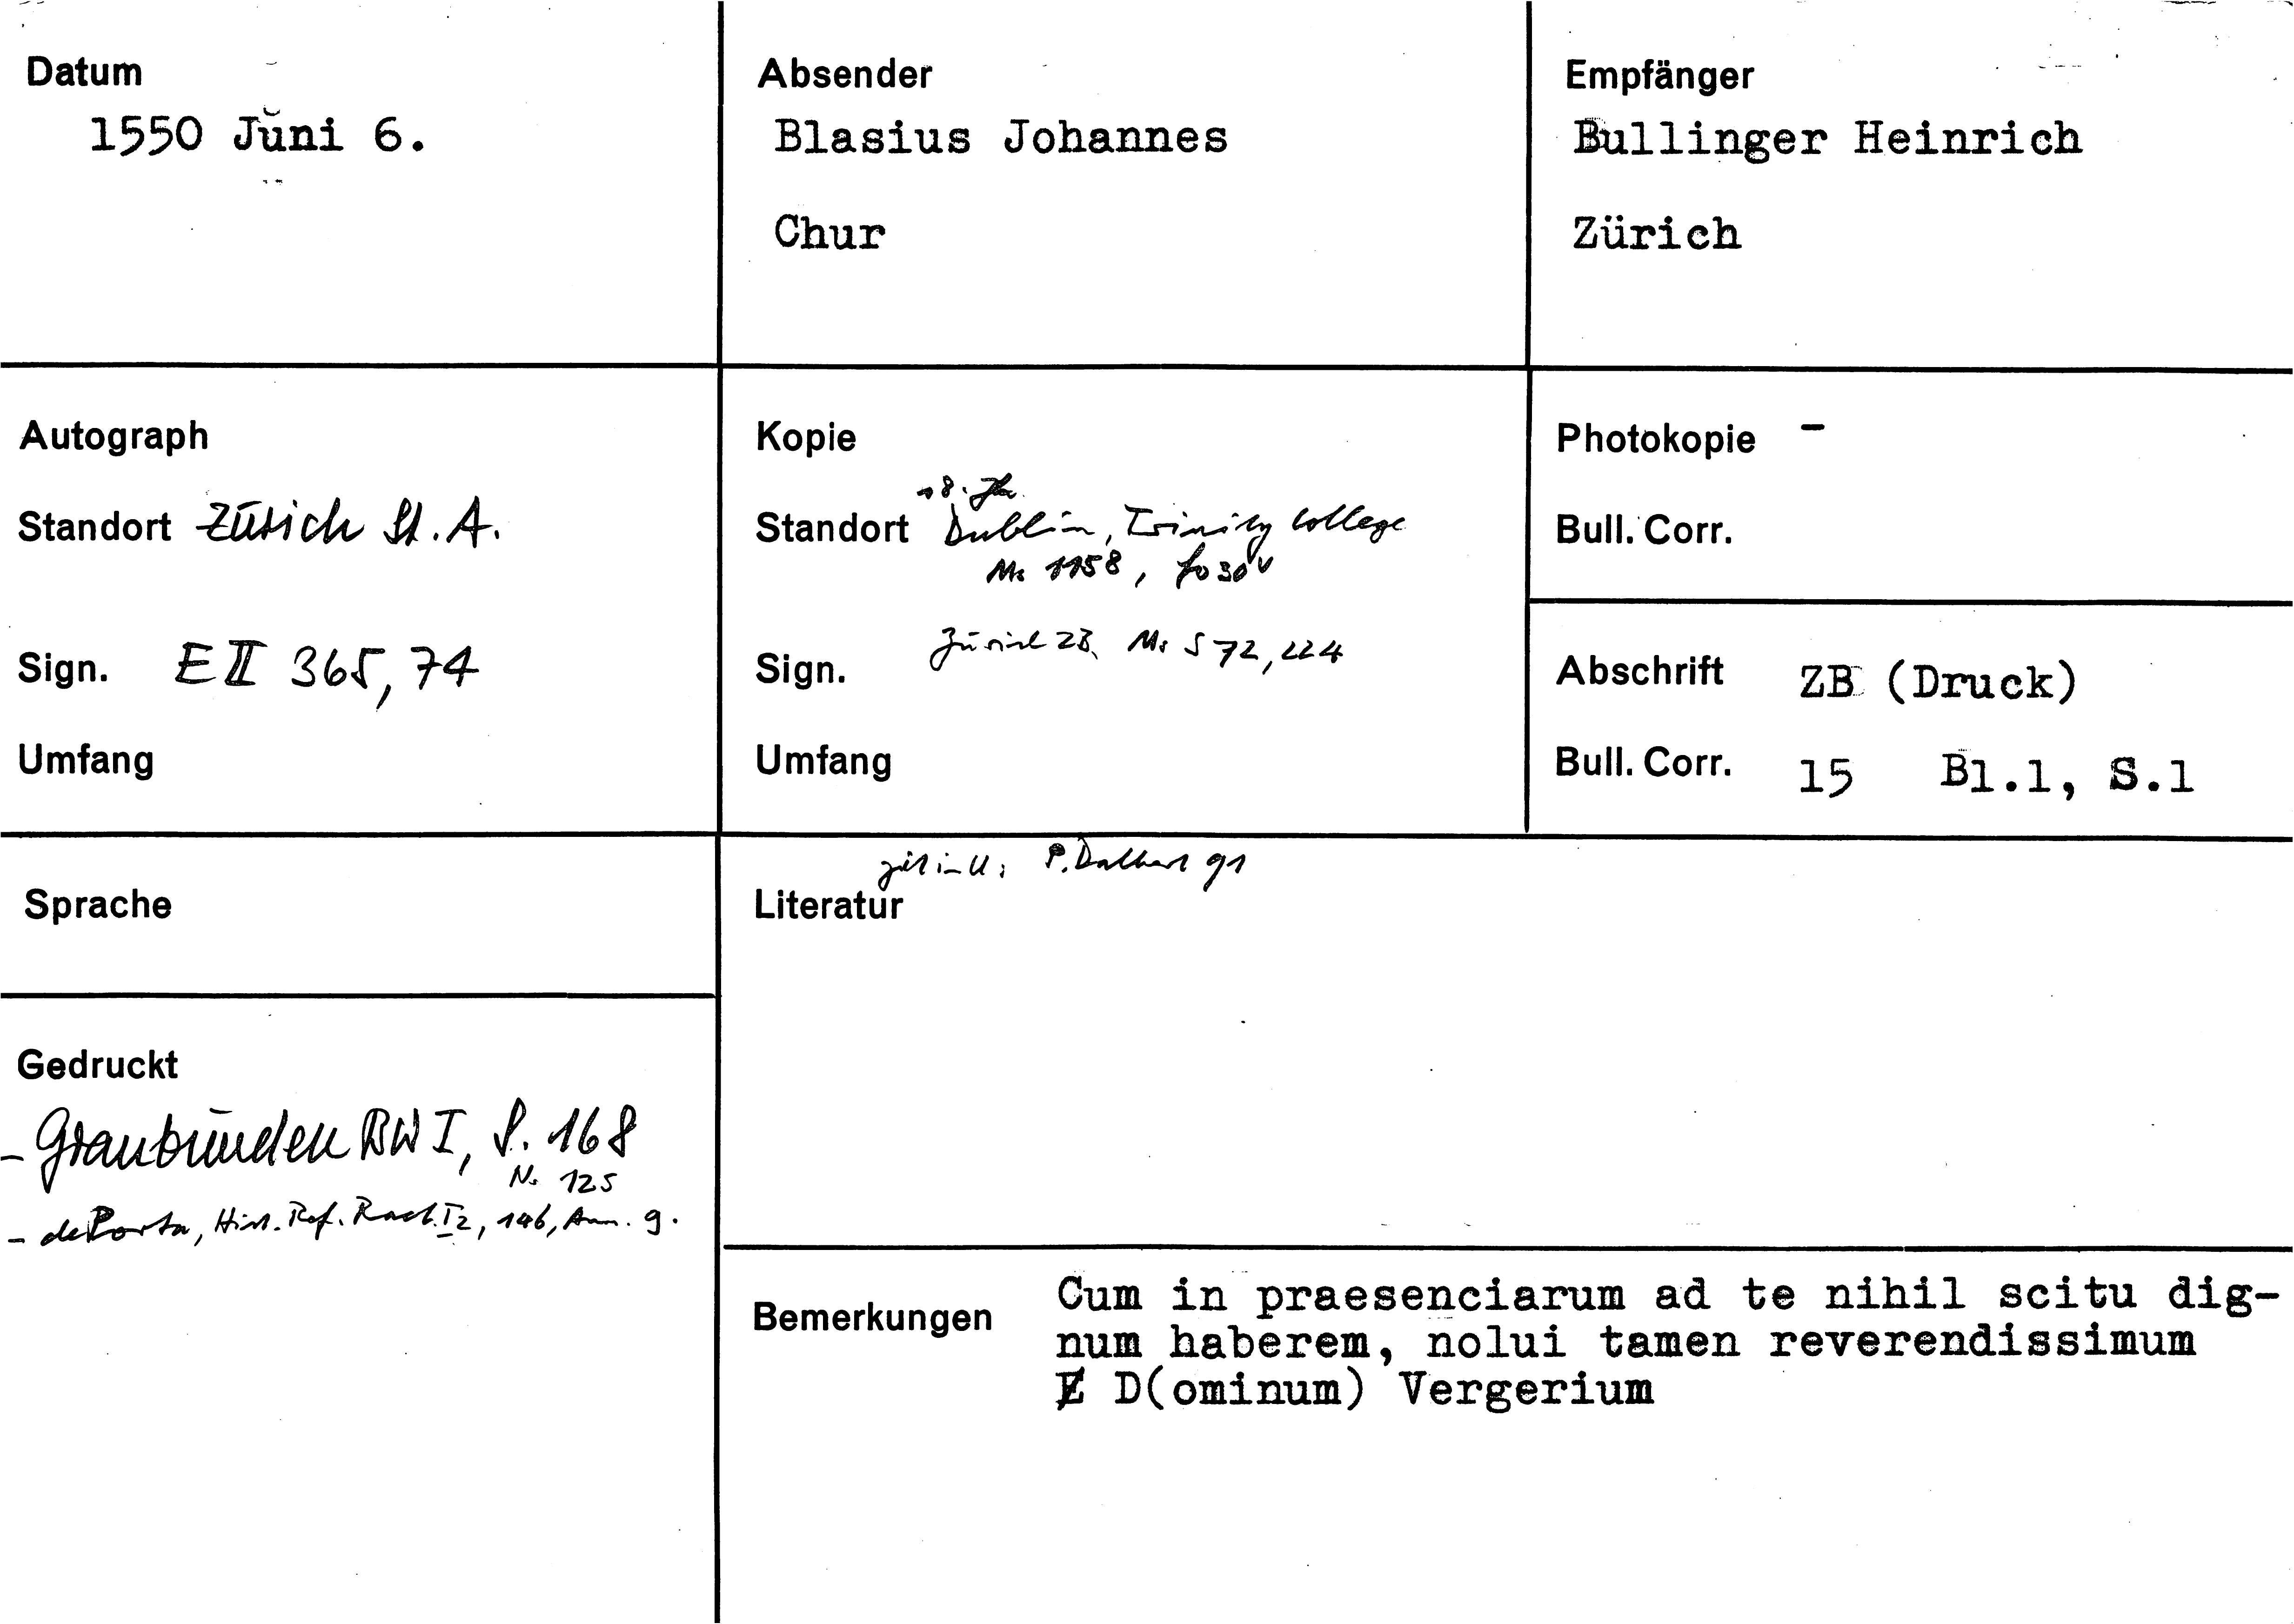 Datum
1550 Juni 6.
Absender
Blasius Johannes
Chur
Empfänger
Bullinger Heinrich
Zürich
Autograph
Standort Zürich St. A.
Sign. E II 365, 74
Umfang
Kopie
18. Jh.
Standort Dublin, Trinity College
Ms 1158, fo 30v
Zürich ZB, Ms S 72, 224
Sign.
Umfang
Photokopie -
Bull. Corr.
Abschrift ZB (Druck)
Bull. Corr. 15 Bl.1, S.1
Sprache
Gedruckt
- Graubünden BW I, S. 168
Nr. 125
- de Porta, Hist. Ref. Raet. I2, 146, Anm. g.
zit in: P. Dalbert 91
Literatur
Bemerkungen
Cum in praesenciarum ad te nihil scitu dig-
num haberem, nolui tamen reverendissimum
D(ominum) Vergerium